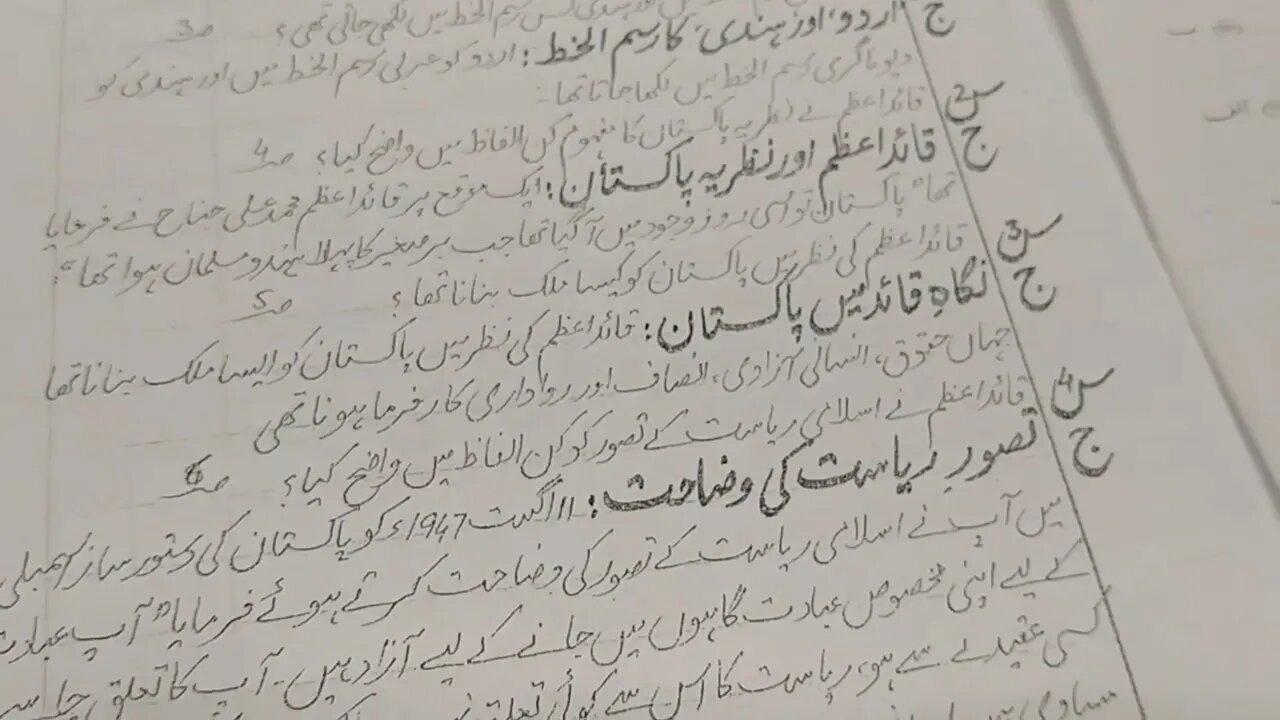 اردو اور ہندی کس رسم الخط میں لکھی جاتی تھی؟ صـ3
ج اردو، اور ہندی، کا رسم الخط: اردو کو عربی رسم الخط میں اور ہندی کو
دیوناگری رسم الخط میں لکھا جاتا تھا۔
س2 قائداعظم نے نظریہ پاکستان کا مفہوم کن الفاظ میں واضح کیا؟ صـ4
ج قائداعظم اور نظریہ پاکستان: ایک موقع پر قائداعظم محمد علی جناح نے فرمایا
تھا "پاکستان تو اسی روز وجود میں آ گیا تھا جب برصغیر کا پہلا ہندو مسلمان ہوا تھا"
س3 قائداعظم کی نظر میں پاکستان کو کیسا ملک بنانا تھا؟ صـ5
ج نگاہِ قائد میں پاکستان: قائداعظم کی نظر میں پاکستان کو ایسا ملک بنانا تھا
جہاں حقوق، انسانی آزادی، انصاف اور رواداری کار فرما ہونا تھی
س4 قائداعظم نے اسلامی ریاست کے تصور کو کن الفاظ میں واضح کیا؟ صـ6
ج تصورِ ریاست کی وضاحت: 11 اگست 1947ء کو پاکستان کی دستور ساز اسمبلی
میں آپ نے اسلامی ریاست کے تصور کی وضاحت کرتے ہوئے فرمایا "آپ عبادت
کے لیے اپنی مخصوص عبادت گاہوں میں جانے کے لیے آزاد ہیں۔ آپ کا تعلق چاہے
کسی عقیدے سے ہو، ریاست کا اس سے کوئی تعلق